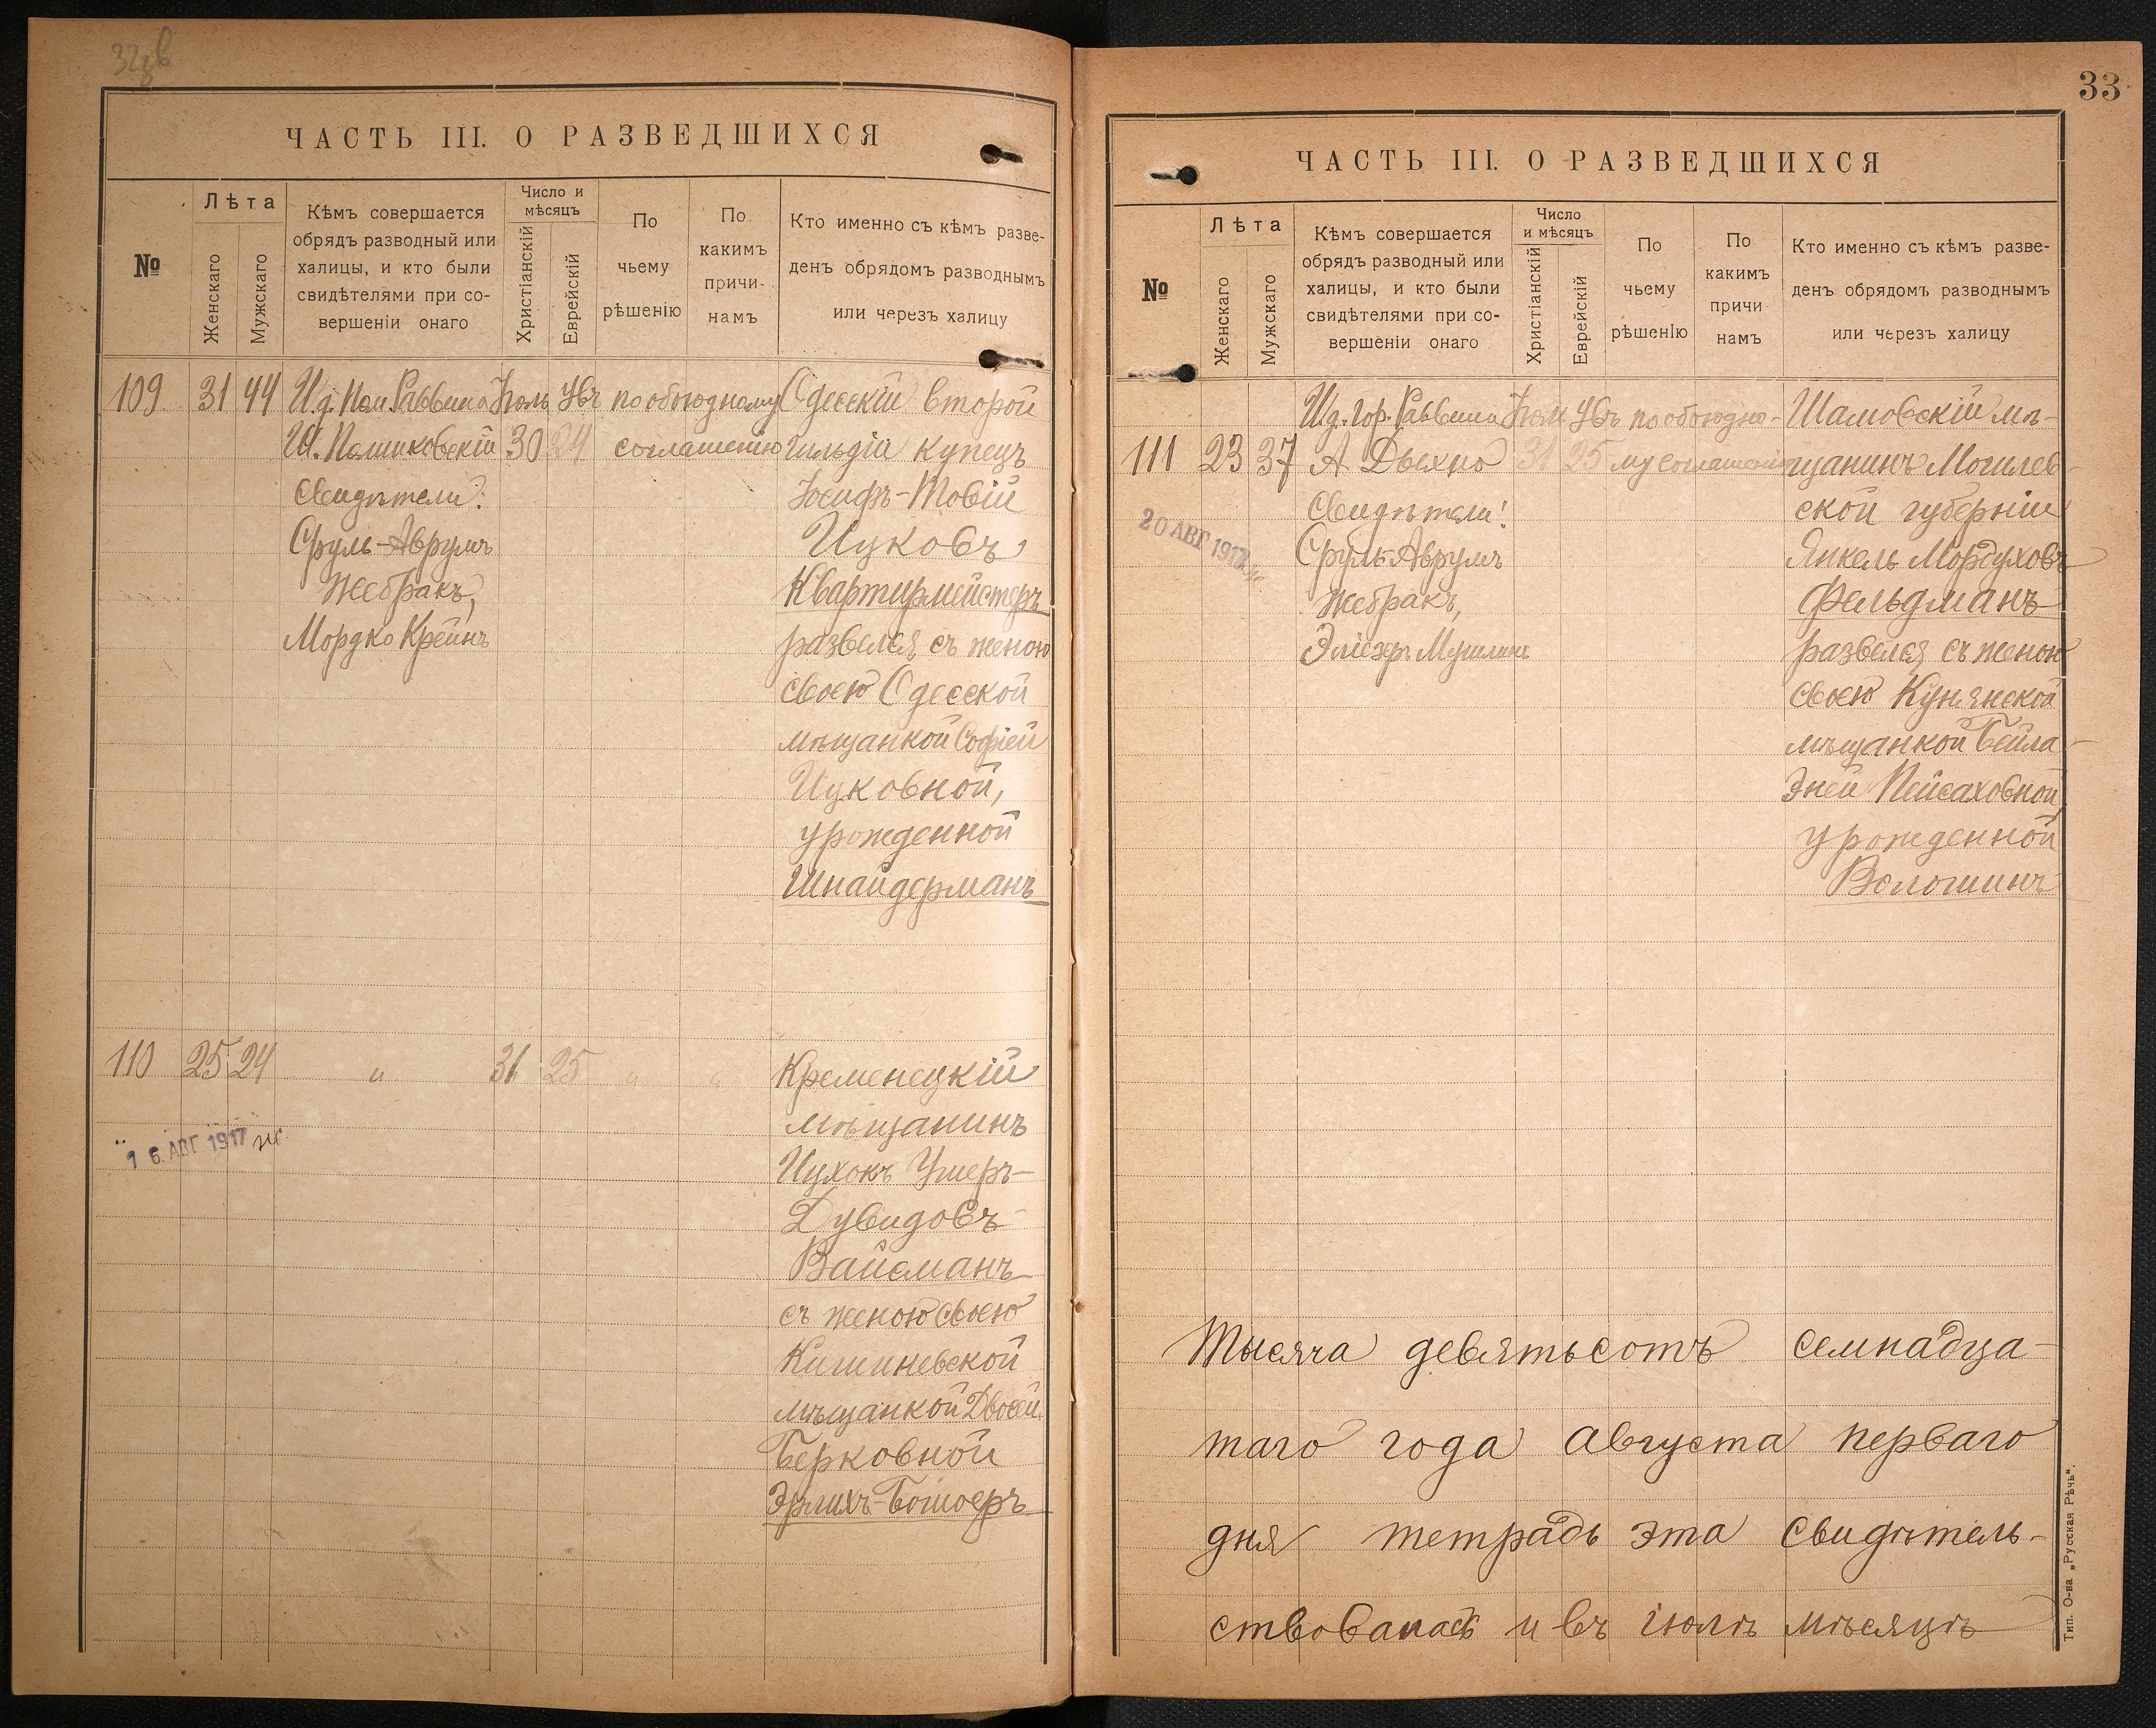 32 об
ЧАСТЬ III. О РАЗВЕДШИХСЯ
№
Лѣта
Женскаго
Мужскаго
Кѣмъ совершается
обрядъ разводный или
халицы, и кто были
свидѣтелями при со-
вершеніи онаго
Число и
мѣсяцъ
Христіанскій
Еврейскій
По
чьему
рѣшенію
По
какимъ
причи-
намъ
Кто именно съ кѣмъ разве-
денъ обрядомъ разводнымъ
или черезъ халицу
109 31 44 И.д. Пом. Раввина Іюль Увъ по обоюдному Одесскій второй
Ш. Полинковскій 30 24 соглашенію гильдіи купецъ
Свидѣтели: Іосифъ-Товій
Сруль-Аврумъ Ицковъ
Жебракъ, Квартирмейстеръ
Мордко Крейнъ развелся съ женою
своею Одесской
мѣщанкой Софіей
Ицковной,
урожденной
Шнайдерманъ
110 25 24 " 31 25 " " Кременецкій
мѣщанинъ
16 АВГ 1917
Ицхокъ Умеръ-
Дувидовъ
Вайсманъ
съ женою своею
Кишиневской
мѣщанкой Двосей
Берковной
Эрлихъ-Бошоеръ
33
ЧАСТЬ III. О РАЗВЕДШИХСЯ
№
Лѣта
Женскаго
Мужскаго
Кѣмъ совершается
обрядъ разводный или
халицы, и кто были
свидѣтелями при со-
вершеніи онаго
Число
и мѣсяцъ
Христіанскій
Еврейскій
По
чьему
рѣшенію
По
какимъ
причи
намъ
Кто именно съ кѣмъ разве-
денъ обрядомъ разводнымъ
или черезъ халицу
И.д. Гор. Раввина Іюль Увъ по обоюдно- Шамовскій мѣ-
111 23 37 А Дыхно 31 25 му соглашенію щанинъ Могилев-
Свидѣтели: ской губерніи
20 АВГ 1917
Сруль-Аврумъ Янкель Мордуховъ
Жебракъ, Фельдманъ
Эліезеръ развелся съ женою
своею Кунянской
мѣщанкой Бейла-
Эней Пейсаховной
урожденной
Волошинъ
Тысяча девятьсотъ семнадца-
таго года августа перваго
дня тетрадь эта свидѣтель-
ствовалась и въ іюлѣ мѣсяцѣ
Тип. О-ва „Русская Рѣчь".